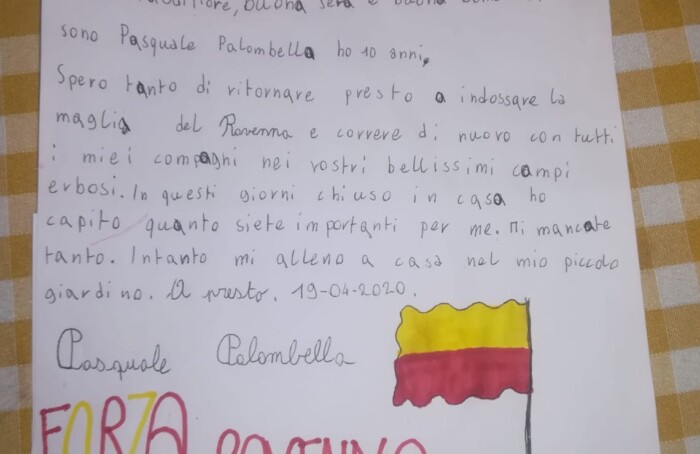 buona sera e buona
sono Pasquale Palombella ho 10 anni,
Spero tanto di ritornare presto a indossare la
maglia del Ravenna e correre di nuovo con tutti
i miei compagni nei vostri bellissimi campi
erbosi. In questi giorni chiuso in casa ho
capito quanto siete importanti per me. Mi mancate
tanto. Intanto mi alleno a casa nel mio piccolo
giardino. A presto. 19-04-2020.
Pasquale Palombella
FORZA RAVENNA